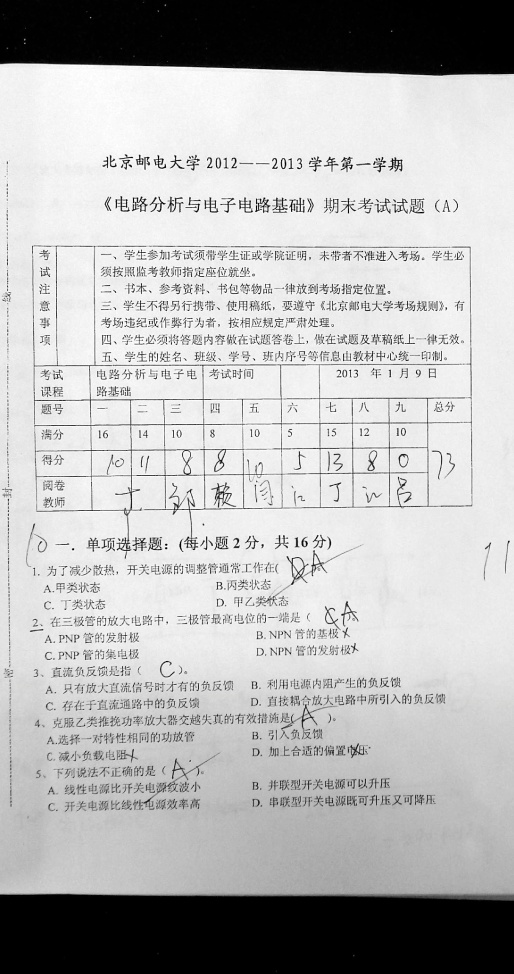 北京邮电大学 2012——2013 学年第一学期
《电路分析与电子电路基础》期末考试试题（A）
考试注意事项
一、学生参加考试须带学生证或学院证明，未带者不准进入考场。学生必
须按照监考教师指定座位就坐。
二、书本、参考资料、书包等物品一律放到考场指定位置。
三、学生不得另行携带、使用稿纸，要遵守《北京邮电大学考场规则》，有
考场违纪或作弊行为者，按相应规定严肃处理。
四、学生必须将答题内容做在试题答卷上，做在试题及草稿纸上一律无效。
五、学生的姓名、班级、学号、班内序号等信息由教材中心统一印制。
考试课程 电路分析与电子电路基础 考试时间 2013 年 1 月 9 日
题号 一 二 三 四 五 六 七 八 九 总分
满分 16 14 10 8 10 5 15 12 10
得分 10 11 8 8 10 5 13 8 0 73
阅卷教师
10 一．单项选择题：(每小题 2 分，共 16 分)
11
1. 为了减少散热，开关电源的调整管通常工作在( A
A.甲类状态 B.丙类状态
C. 丁类状态 D. 甲乙类状态
2、在三极管的放大电路中，三极管最高电位的一端是（ A
A. PNP 管的发射极 B. NPN 管的基极
C. PNP 管的集电极 D. NPN 管的发射极
3、直流负反馈是指（ C ）。
A. 只有放大直流信号时才有的负反馈 B. 利用电源内阻产生的负反馈
C. 存在于直流通路中的负反馈 D. 直接耦合放大电路中所引入的负反馈
4、克服乙类推挽功率放大器交越失真的有效措施是( A ）。
A.选择一对特性相同的功放管 B. 引入负反馈
C. 减小负载电阻 D. 加上合适的偏置电压
5、下列说法不正确的是（ A ）。
A. 线性电源比开关电源纹波小 B. 并联型开关电源可以升压
C. 开关电源比线性电源效率高 D. 串联型开关电源既可升压又可降压